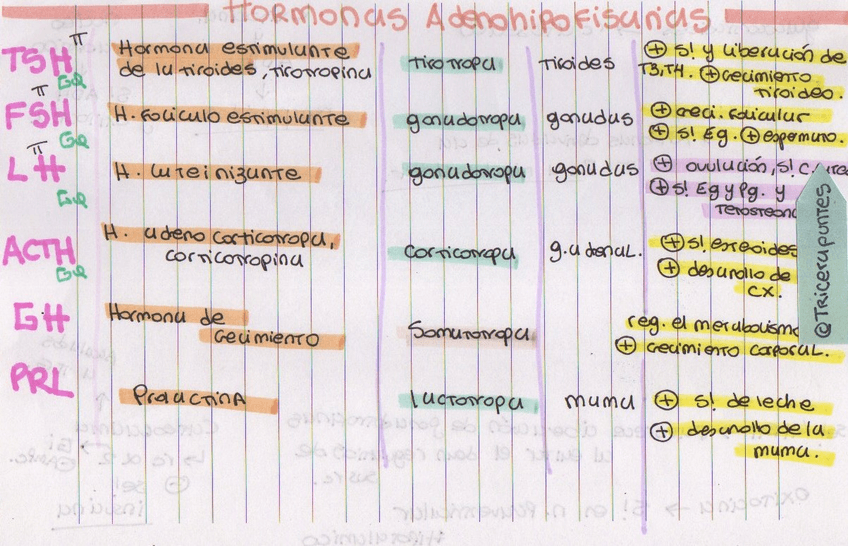 Hormonas Adenohipofisarias
TSH π GQ
Hormona estimulante
de la tiroides, tirotropina
tirotropa
Tiroides
⊕ s! y liberación de
T3,T4. ⊕ crecimiento
tiroideo.
FSH π GQ
H. foliculo estimulante
gonadotropa
gonadas
⊕ creci. folicular
⊕ s! Eg. ⊕ espermato.
LH π GQ
H. Luteinizante
gonadotropa
gonadas
⊕ ovulación, s!
⊕ s! Eg y Pg. y
ACTH GQ
H. adeno corticotropa,
corticotropina
corticotropa
g. adrenal.
⊕ s! esteroides
⊕ desarrollo de
CX.
GH
Hormona de
Crecimiento
Somatotropa
reg. el metabolismo
⊕ crecimiento corporal.
PRL
Prolactina
lactotropa
mama
⊕ s! de leche
⊕ desarrollo de la
mama.
@Tricerapuntes